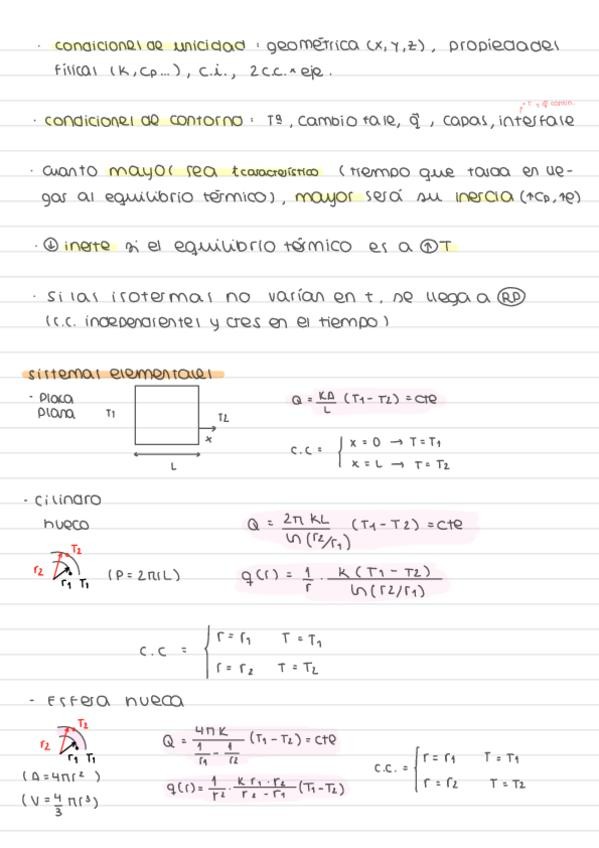 · condiciones de unicidad : geométrica (x, y, z), propiedades
físicas (k, Cp...), c.i., 2 c.c. ^ eje.
↗ T, q contin.
· condiciones de contorno : Tª, cambio fase, q̇, capas, interfase
· cuanto mayor sea t característico (tiempo que tarda en lle-
gar al equilibrio térmico), mayor será su inercia (↑Cp, ↑e)
· ↓ inerte si el equilibrio térmico es a ↑ T
· si las isotermas no varían en t, se llega a RP
(c.c. independientes y ctes en el tiempo)
sistemas elementales
· Placa plana
T1 T2 x L
Q = KA/L (T1 - T2) = cte
C.C = { x = 0 → T = T1
x = L → T = T2
· Cilindro
hueco
r2 T2 r1 T1
(P = 2πrL)
Q = 2π KL / ln (r2/r1) (T1 - T2) = cte
q(r) = 1/r · K (T1 - T2) / ln (r2/r1)
C.C = { r = r1 T = T1
r = r2 T = T2
- Esfera hueca
r2 T2 r1 T1
(A = 4πr²)
(V = 4/3 πr³)
Q = 4πK / (1/r1 - 1/r2) (T1 - T2) = cte
q(r) = 1/r² · K r1 · r2 / (r2 - r1) (T1 - T2)
C.C. = { r = r1 T = T1
r = r2 T = T2